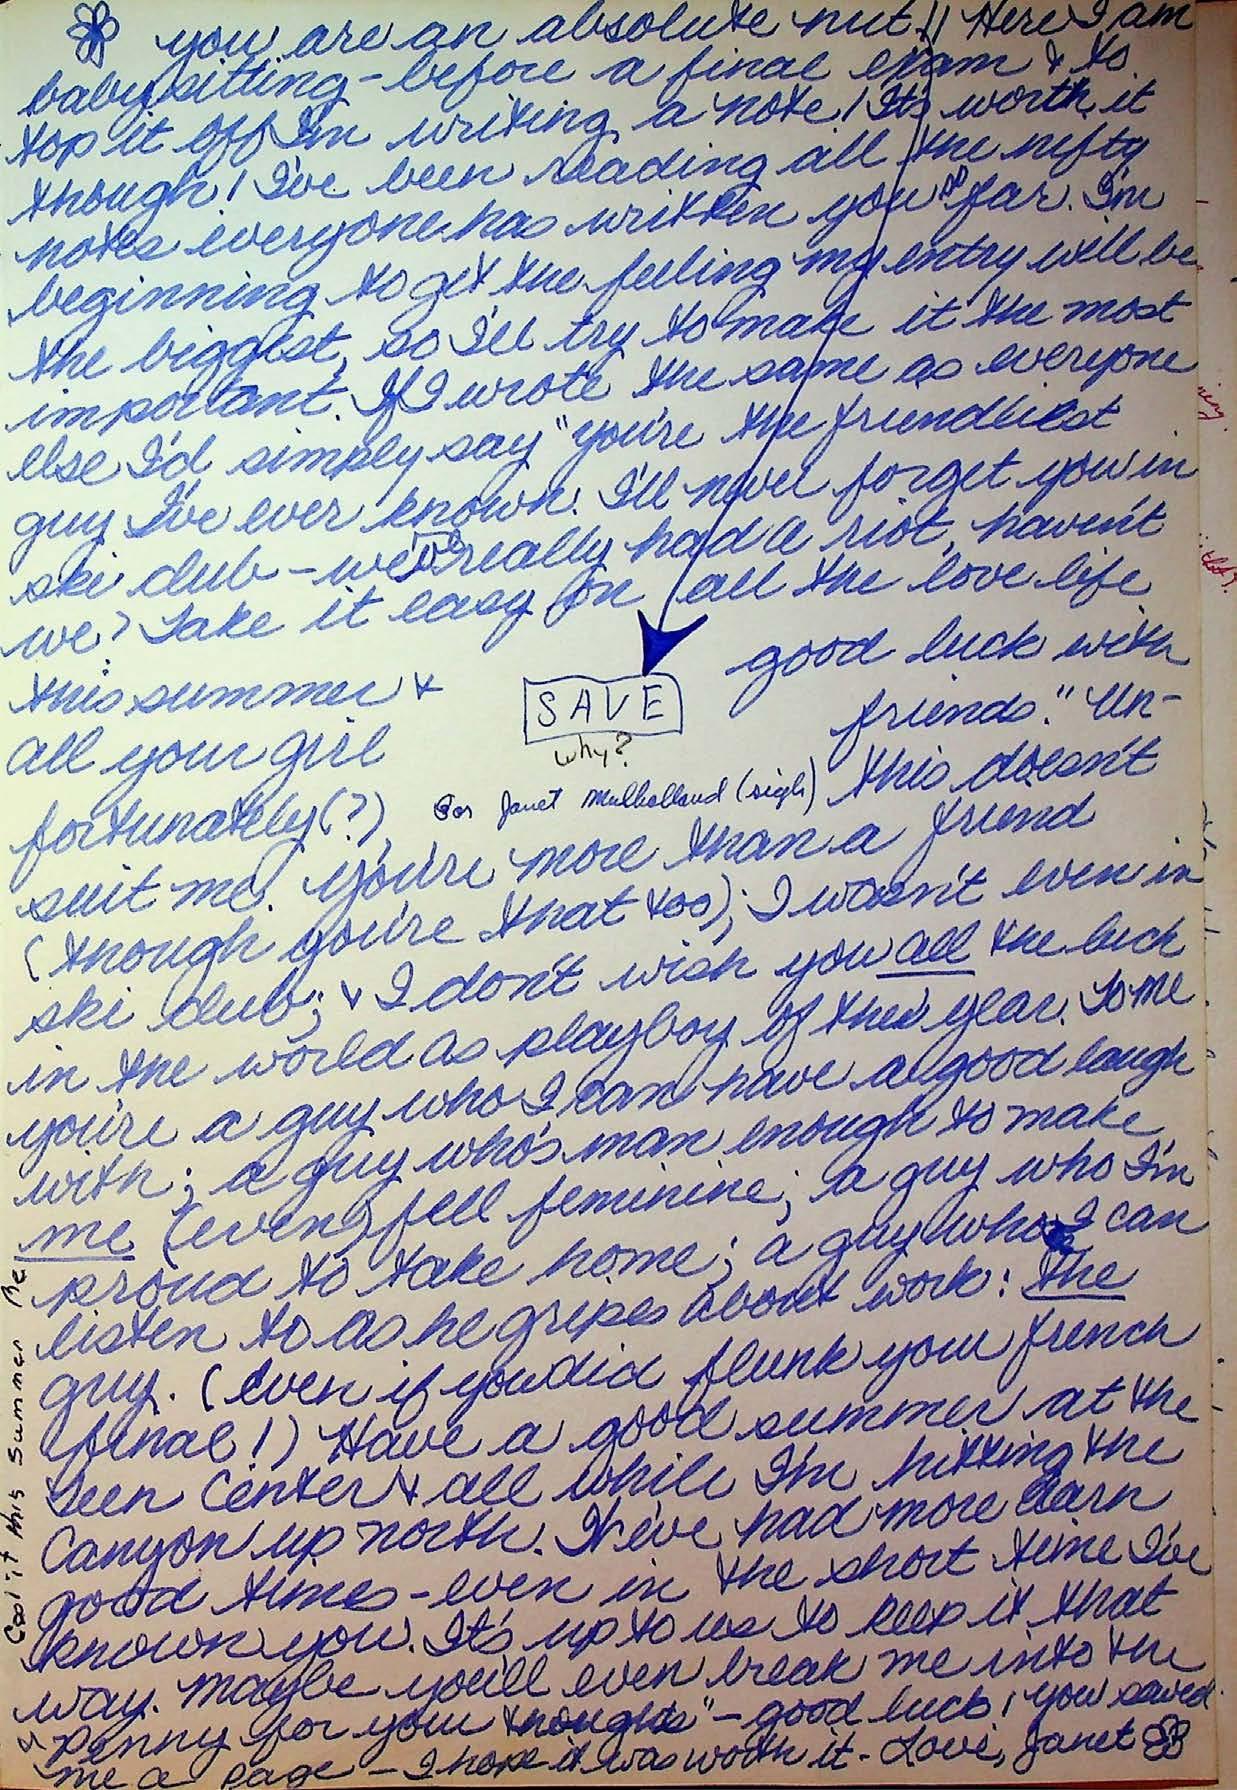 you are an absolute nut!! Here I am
babysitting - before a final exam & to
top it off I'm writing a note! Its worth it
though! I've been reading all the nifty
notes everyone has written you so far. I'm
beginning to get the feeling my entry will be
the biggest, so I'll try to make it the most
important. If I wrote the same as everyone
else I'd simply say "you're the friendliest
guy I've ever known. I'll never forget you in
ski club - we've really had a riot, haven't
we? Take it easy on all the love life
this summer & good luck with
SAVE
why?
all your girl friends." Un-
for Janet Mulholland (sigh)
fortunately(?), this doesn't
suit me. You're more than a friend
(though you're that too); I wasn't even in
ski club; & I don't wish you all the luck
in the world as playboy of the year. To me
you're a guy who I can have a good laugh
with; a guy who's man enough to make
me (even) fell feminine; a guy who I'm
proud to take home; a guy who I can
listen to as he gripes about work: the
guy. (even if you did flunk your french
final!) Have a good summer at the
Teen Center & all while I'm hitting the
Canyon up north. We've had more darn
good times - even in the short time I've
known you. It's up to us to keep it that
way. Maybe you'll even break me into the
"Penny for your thoughts" - good luck! you saved
me a page - I hope it was worth it - Love, Janet
Cool it this summer Be